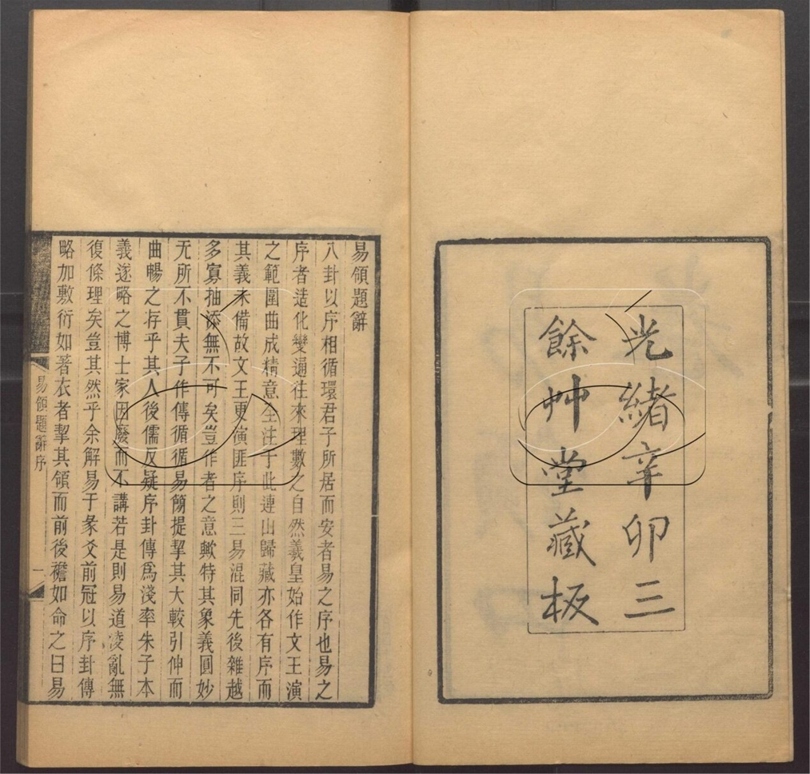 光緒辛卯三
餘艸堂藏板
易領題辭
八卦以序相循環君子所居而安者易之序也易之
序者造化變通往來理數之自然羲皇始作文王演
之範圍曲成精意全注于此連山歸藏亦各有序而
其義未備故文王更演匪序則三易混同先後雜越
多寡抽添無不可矣豈作者之意歟特其象義圓妙
无所不貫夫子作傳循循易簡提挈其大較引伸而
曲暢之存乎其人後儒反疑序卦傳爲淺率朱子本
義遂略之博士家因廢而不講若是則易道淩亂無
復條理矣豈其然乎余解易于彖爻前冠以序卦傳
略加敷衍如著衣者挈其領而前後襜如命之曰易
易領題辭序
一